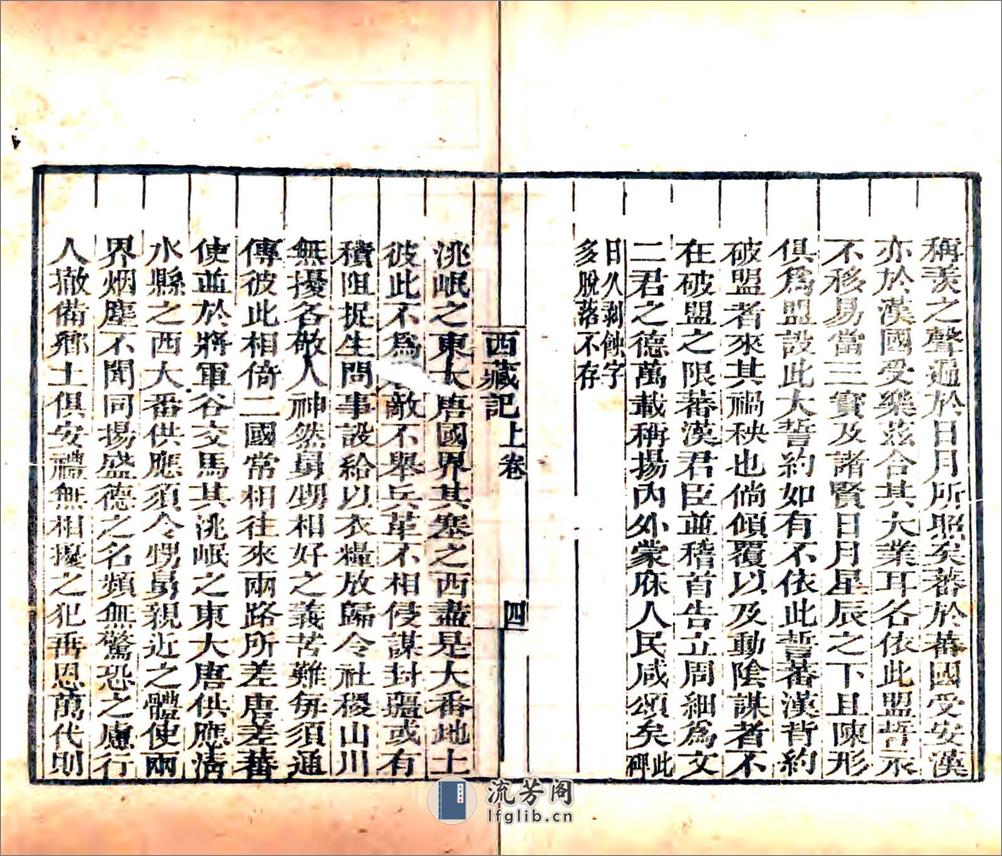 稱羡之聲遍於日月所照矣蕃於蕃國受安漢
亦於漢國受樂茲合其大業耳各依此盟誓永
不移易當三寶及諸賢日月星辰之下且陳形
俱爲盟設此大誓約如有不依此誓蕃漢背約
破盟者來其禍秧也倘傾覆以及動陰謀者不
在破盟之限蕃漢君臣並稽首告立周細爲文
二君之德萬載稱揚內外蒙庥人民咸頌矣此碑
日久剥蝕字
多脫落不存
西藏記上卷 四
洮岷之東大唐國界其塞之西盡是大番地土
彼此不爲敵不舉兵革不相侵謀封疆或有
積阻捉生問事設給以衣糧放歸令社稷山川
無擾各敬人神然舅甥相好之義苦難每須通
傳彼此相倚二國常相往來兩路所差唐差蕃
使並於將軍谷交馬其洮岷之東大唐供應清
水縣之西大番供應須令甥舅親近之體使兩
界烟塵不聞同揚盛德之名類無驚恐之慮行
人撤備鄉土俱安禮無相擾之犯垂恩萬代則
流芳阁
lfglib.cn